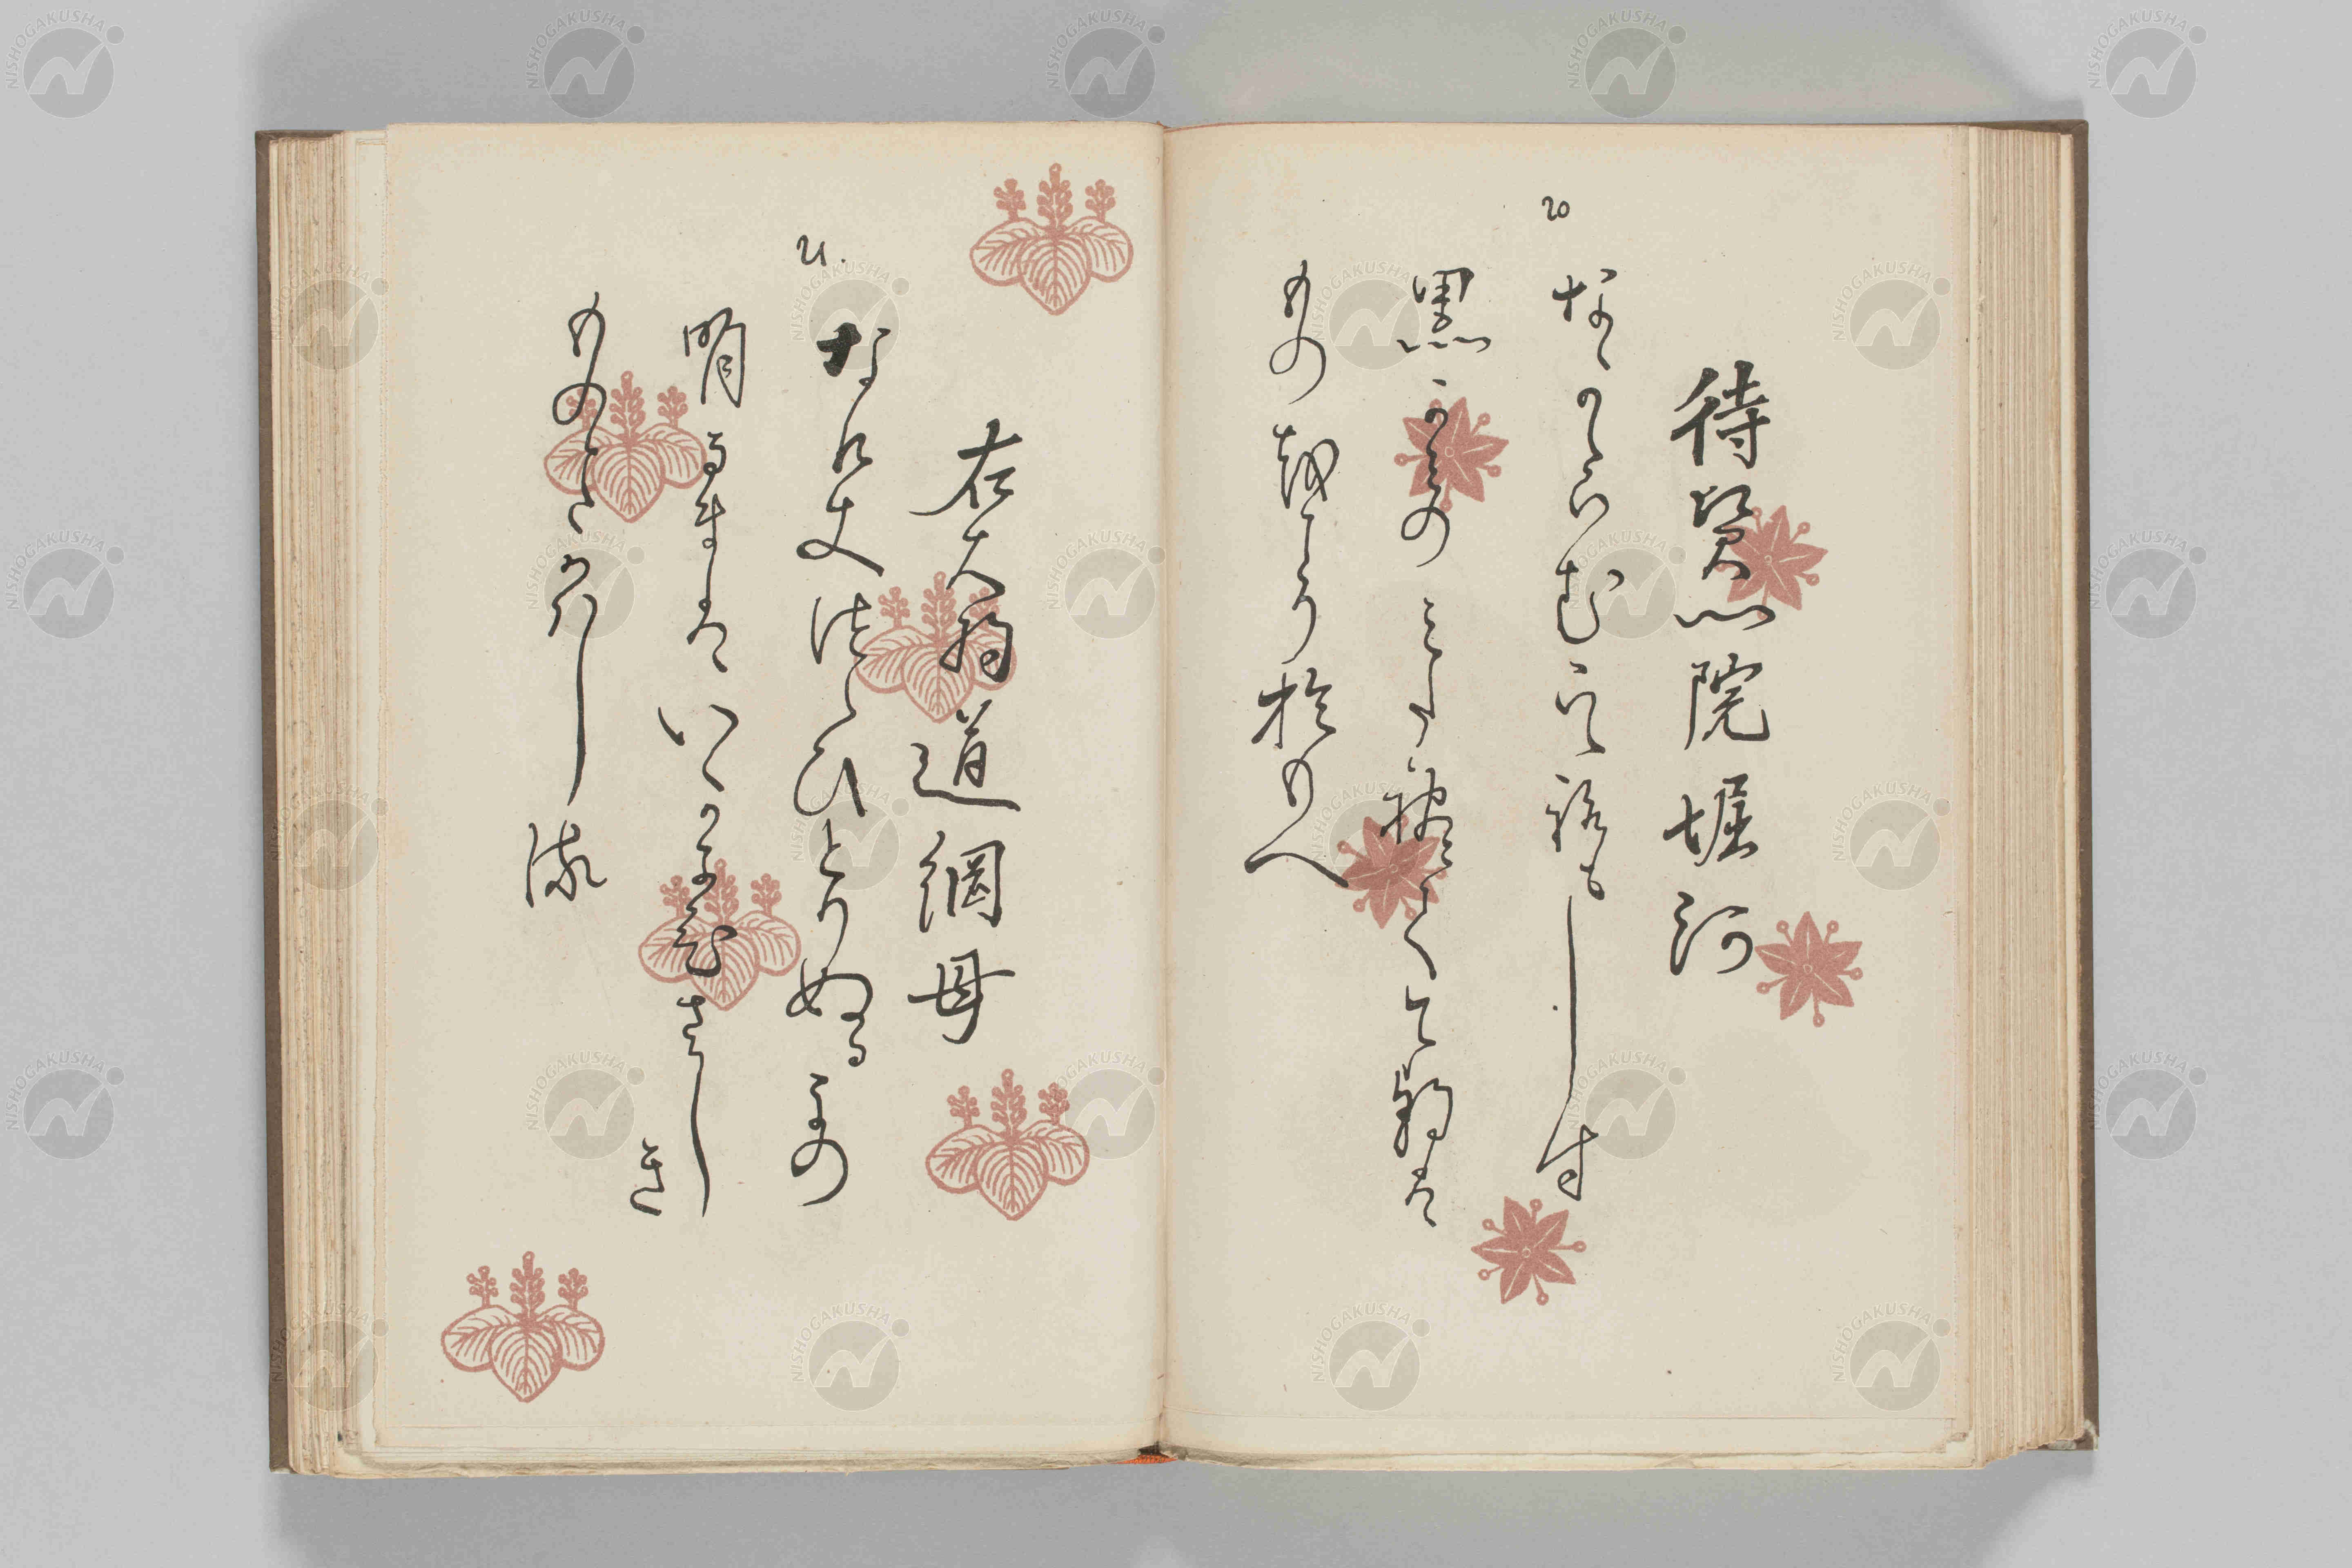 20
待賢門院堀河
なかゝらむこゝろもしらす
黒かみのみたれてけさは
ものをこそおもへ
21.
右大将道綱母
なけきつゝひとりぬるよの
明るまはいかにひさし
き
ものとかはしる
NISHOGAKUSHA